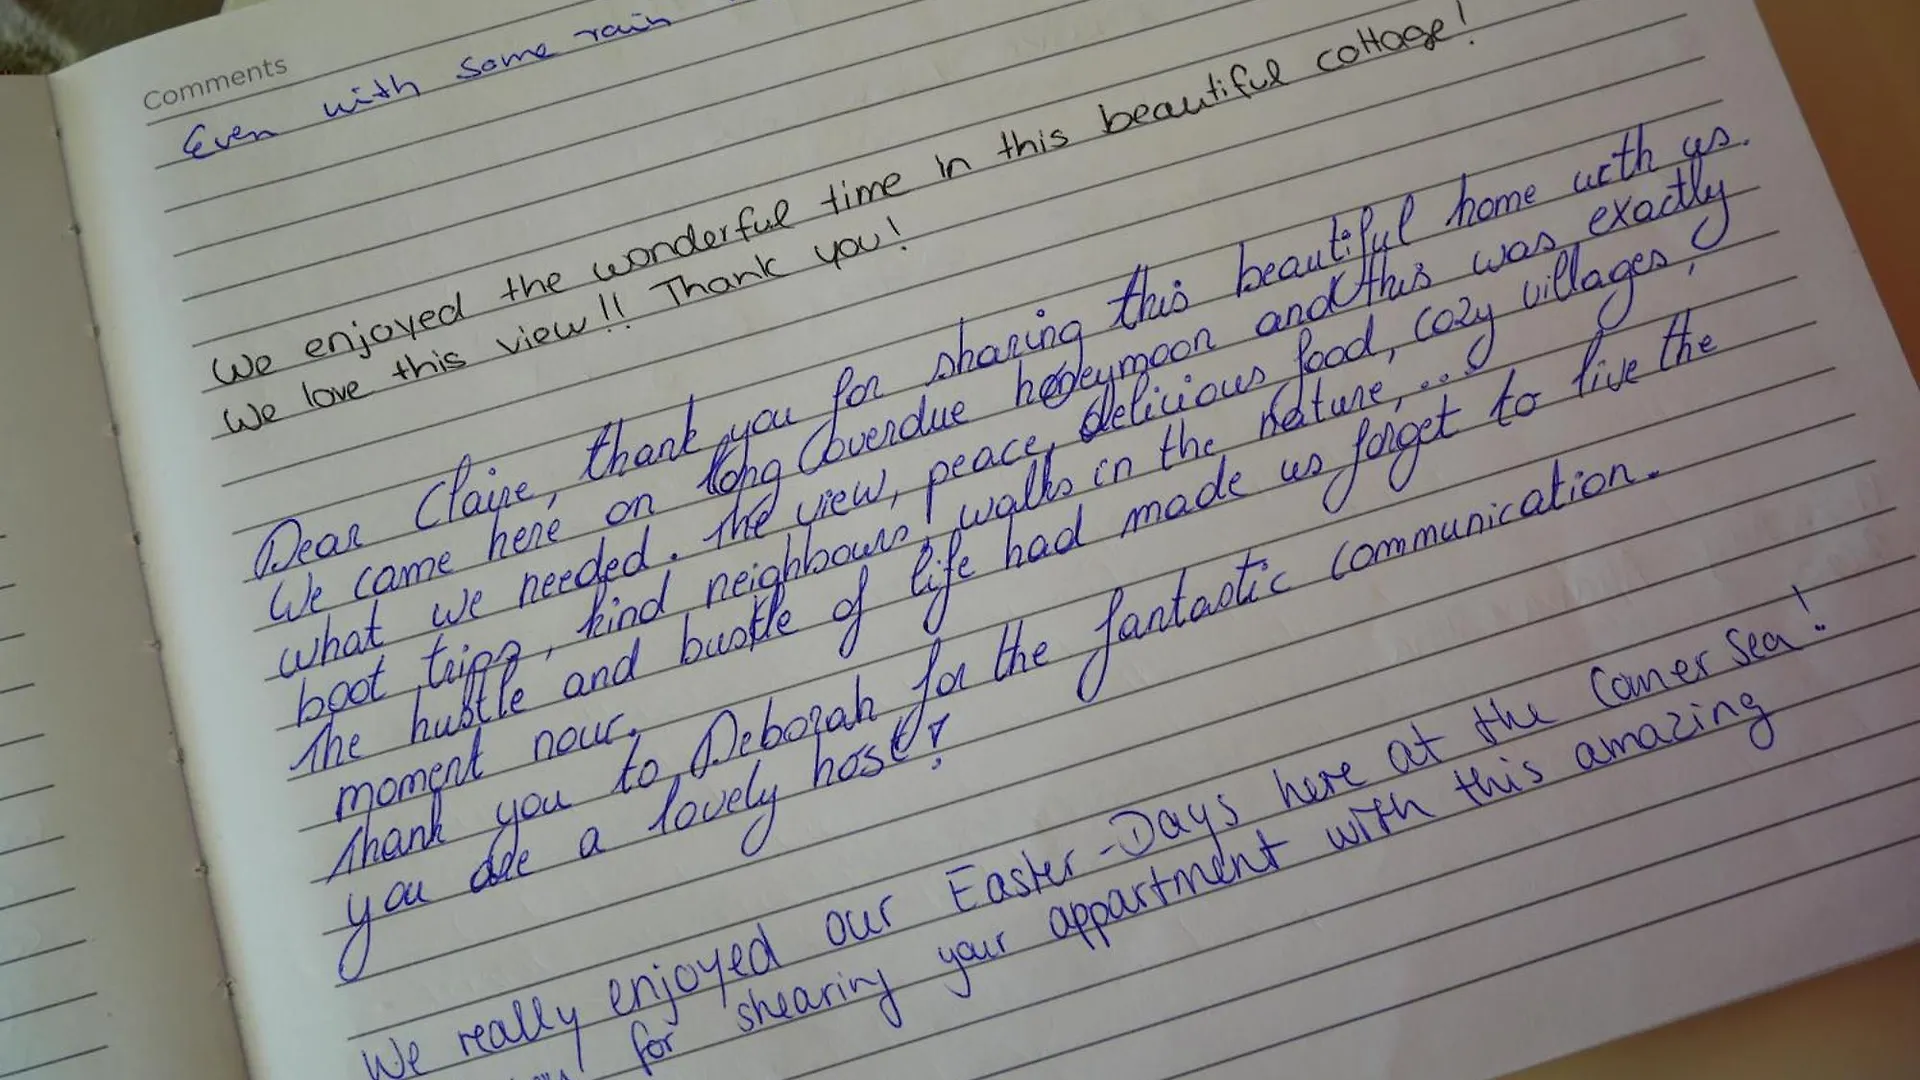 Comments
Even with some rain
We enjoyed the wonderful time in this beautiful cottage!
We love this view!! Thank you!
Dear Claire, thank you for sharing this beautiful home with us.
We came here on long overdue honeymoon and this was exactly
what we needed. The view, peace, delicious food, cozy villages,
boot tripp, kind neighbours, walks in the nature,...
The hustle and bustle of life had made us forget to live the
moment nour.
Thank you to Deborah for the fantastic communication.
you are a lovely host!
We really enjoyed our Easter-Days here at the Comer Sea!
for shearing your appartment with this amazing